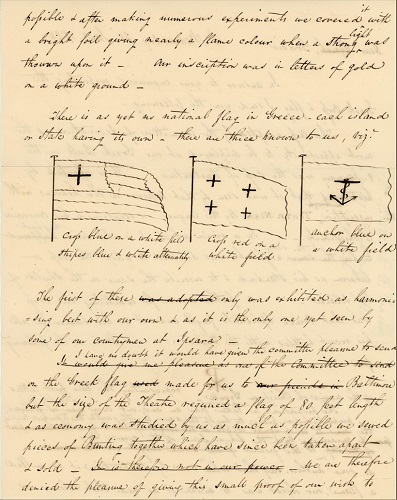 it
possible & after making numerous experiments we covered with
a bright foil giving nearly a flame colour when a strong light was
thrown upon it – Our inscription was in letters of gold
on a white ground –
There is as yet no national flag in Greece – each island
or State having its own – there are three known to us, viz:-
Cross blue on a white field
stripes blue & white alternately
Cross red on a
white field
anchor blue on
a white field
The first of these was adopted only was exhibited as harmonis
=sing best with our own & as it is the only one yet seen by
some of our countrymen at Ipsara –
I have no doubt it would have given the committee pleasure to send
It would give me pleasure as one of the Committee to send
on the Greek flag used made for us to our friends in Baltimore
but the size of the Theatre required a flag of 80 feet length
& as economy was studied by us as much as possible we sewed
pieces of Bunting together which have since been taken apart
& sold – It is therefore not in our power – we are therefore
denied the pleasure of giving this small proof of our wish to